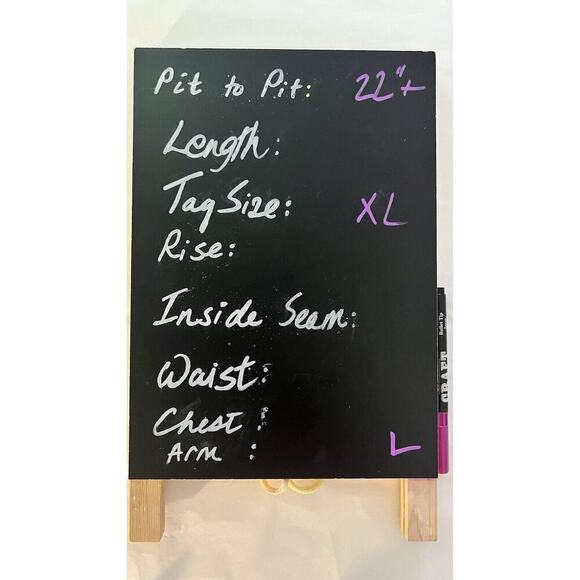 Pit to Pit: 22"+
Length:
Tag Size: XL
Rise:
Inside Seam:
Waist:
Chest:
Arm : L
Bullet Tip
CRAFT